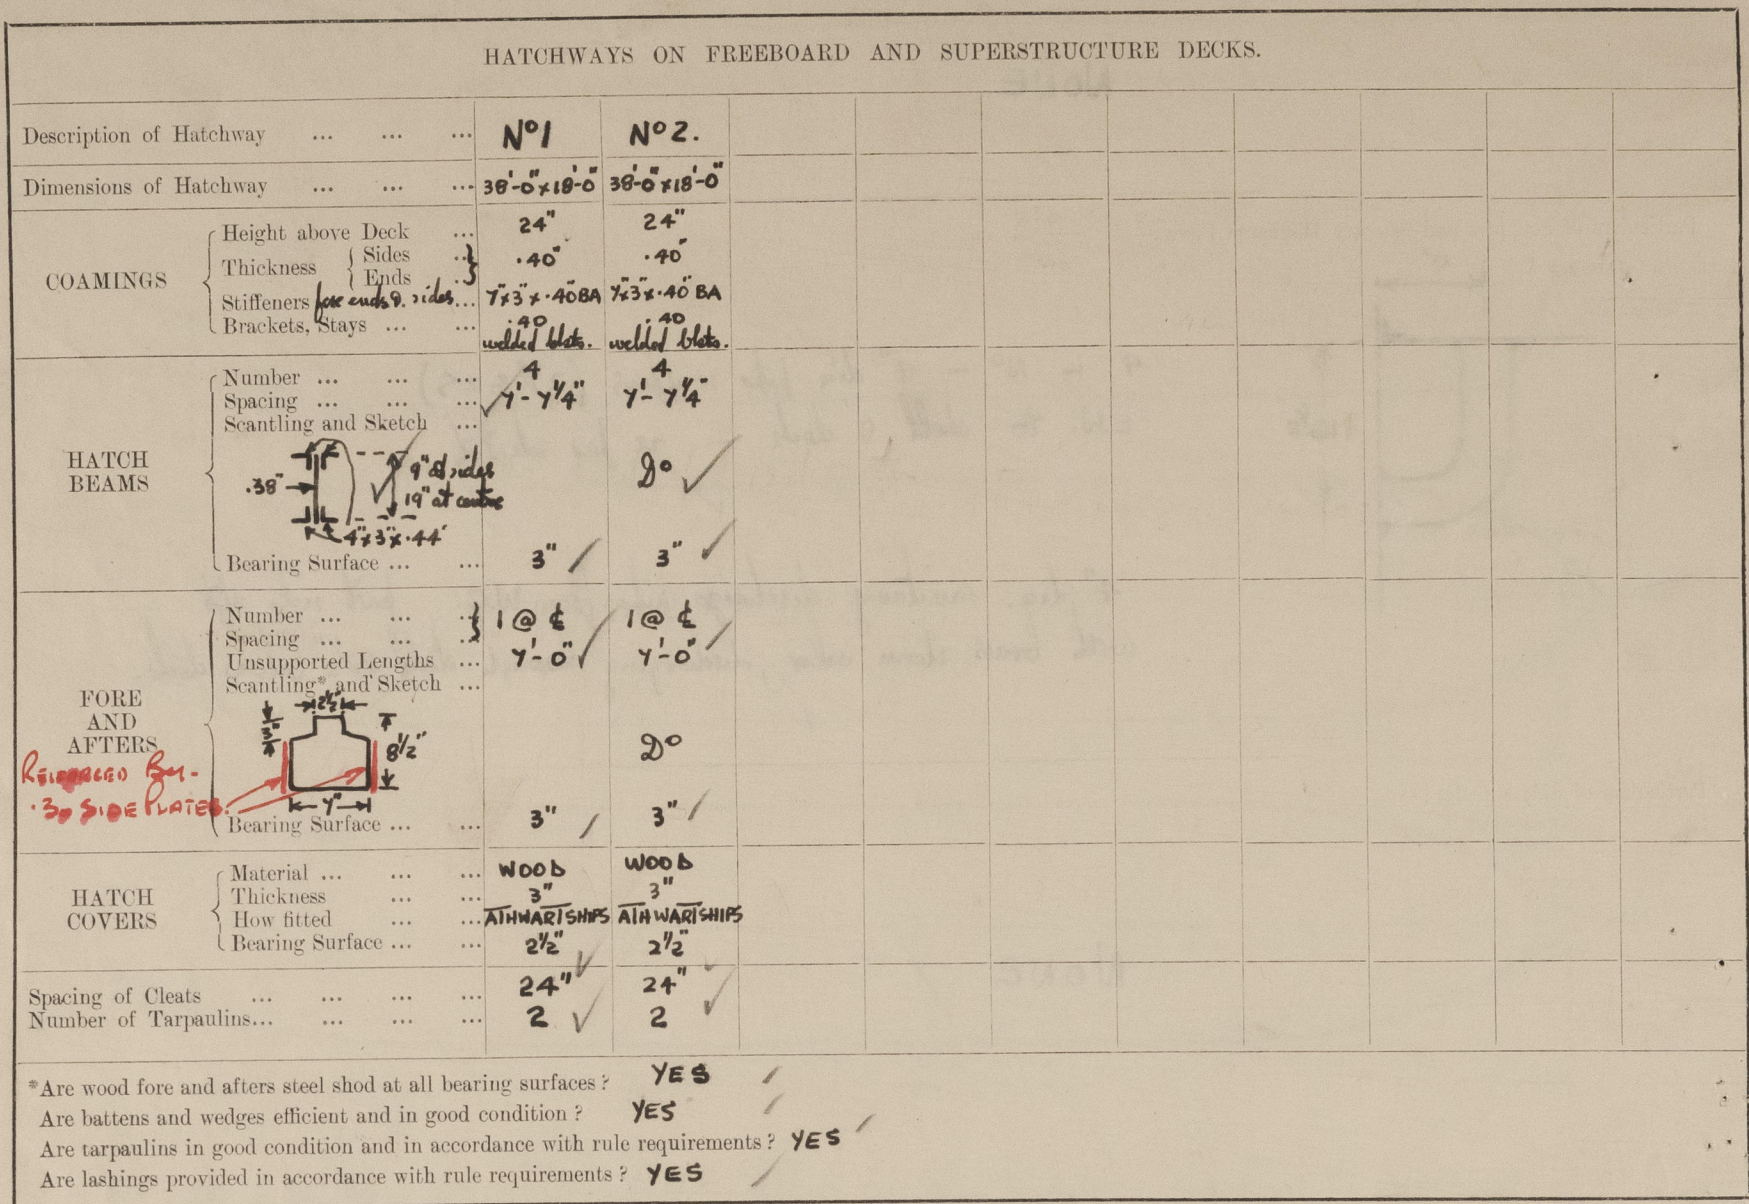 HATCHWAYS ON FREEBOARD AND SUPERSTRUCTURE DECKS.
Description of Hatchway ... ... ... Nº1 Nº2.
Dimensions of Hatchway ... ... ... 38'-0"x18'-0" 38'-0"x18'-0"
COAMINGS
Height above Deck ... 24" 24"
Thickness { Sides ... } .40" .40"
Ends ...
Stiffeners fore ends & sides... 7"x3"x.40"BA 7"x3"x.40"BA
Brackets, Stays ... ... .40 .40
welded bkts. welded bkts.
HATCH BEAMS
Number ... ... ... 4 4
Spacing ... ... ... 7'-7¼" 7'-7¼"
Scantling and Sketch ...
.38"
9" at sides
19" at centre
4"x3"x.44"
Dº
Bearing Surface ... ... 3" 3"
FORE AND AFTERS
Number ... ... ... } 1 @ ℄ 1 @ ℄
Spacing ... ... ...
Unsupported Lengths ... 7'-0" 7'-0"
Scantling* and Sketch ...
2½"
3"
8½"
7"
Dº
REINFORCED BY-
.30 SIDE PLATES.
Bearing Surface ... ... 3" 3"
HATCH COVERS
Material ... ... ... WOOD WOOD
Thickness ... ... 3" 3"
How fitted ... ... ATHWARTSHIPS ATHWARTSHIPS
Bearing Surface ... ... 2½" 2½"
Spacing of Cleats ... ... ... ... 24" 24"
Number of Tarpaulins... ... ... ... 2 2
*Are wood fore and afters steel shod at all bearing surfaces? YES
Are battens and wedges efficient and in good condition? YES
Are tarpaulins in good condition and in accordance with rule requirements? YES
Are lashings provided in accordance with rule requirements? YES